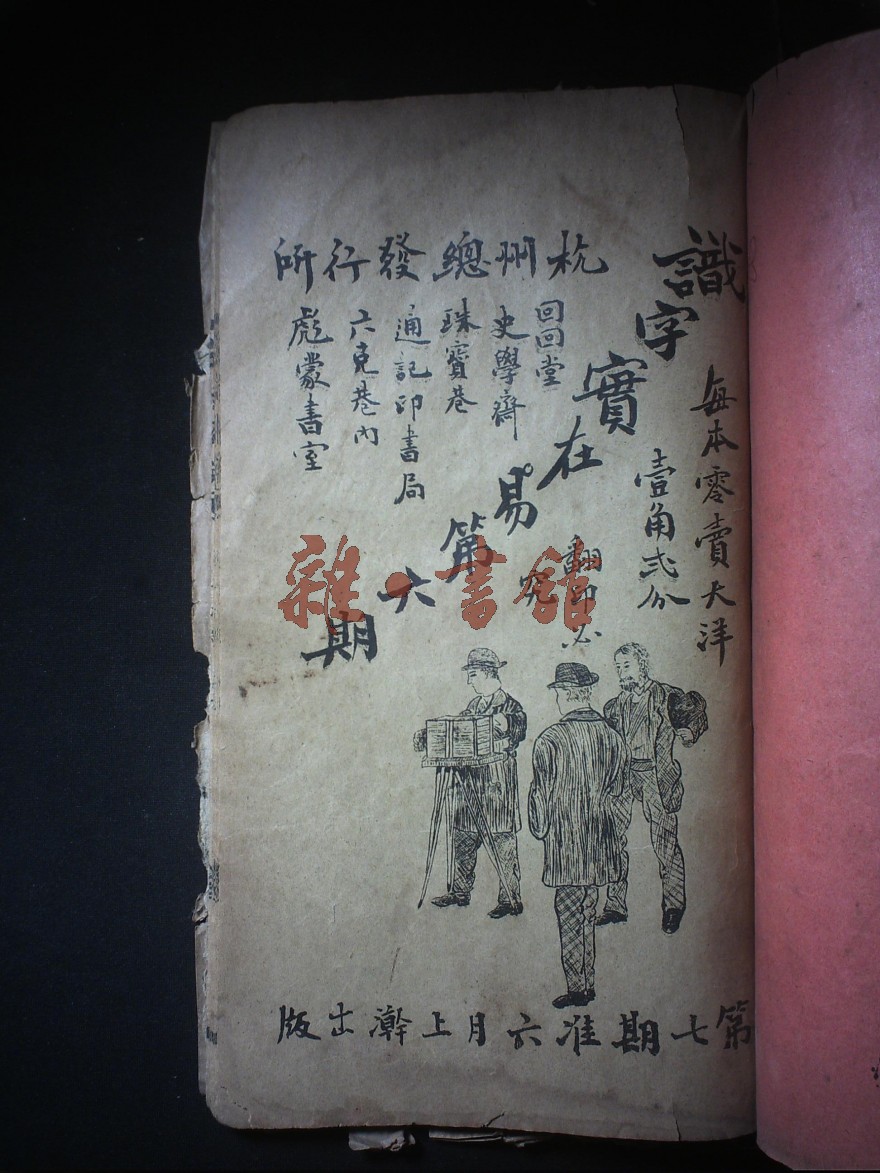 識字實在易
第六期
每本零賣大洋
壹角弍分
翻印必
究
杭州總發行所
回回堂
史學齋
珠寶巷
通記印書局
六克巷內
彪蒙書室
第七期准六月上澣出版
雜·書館